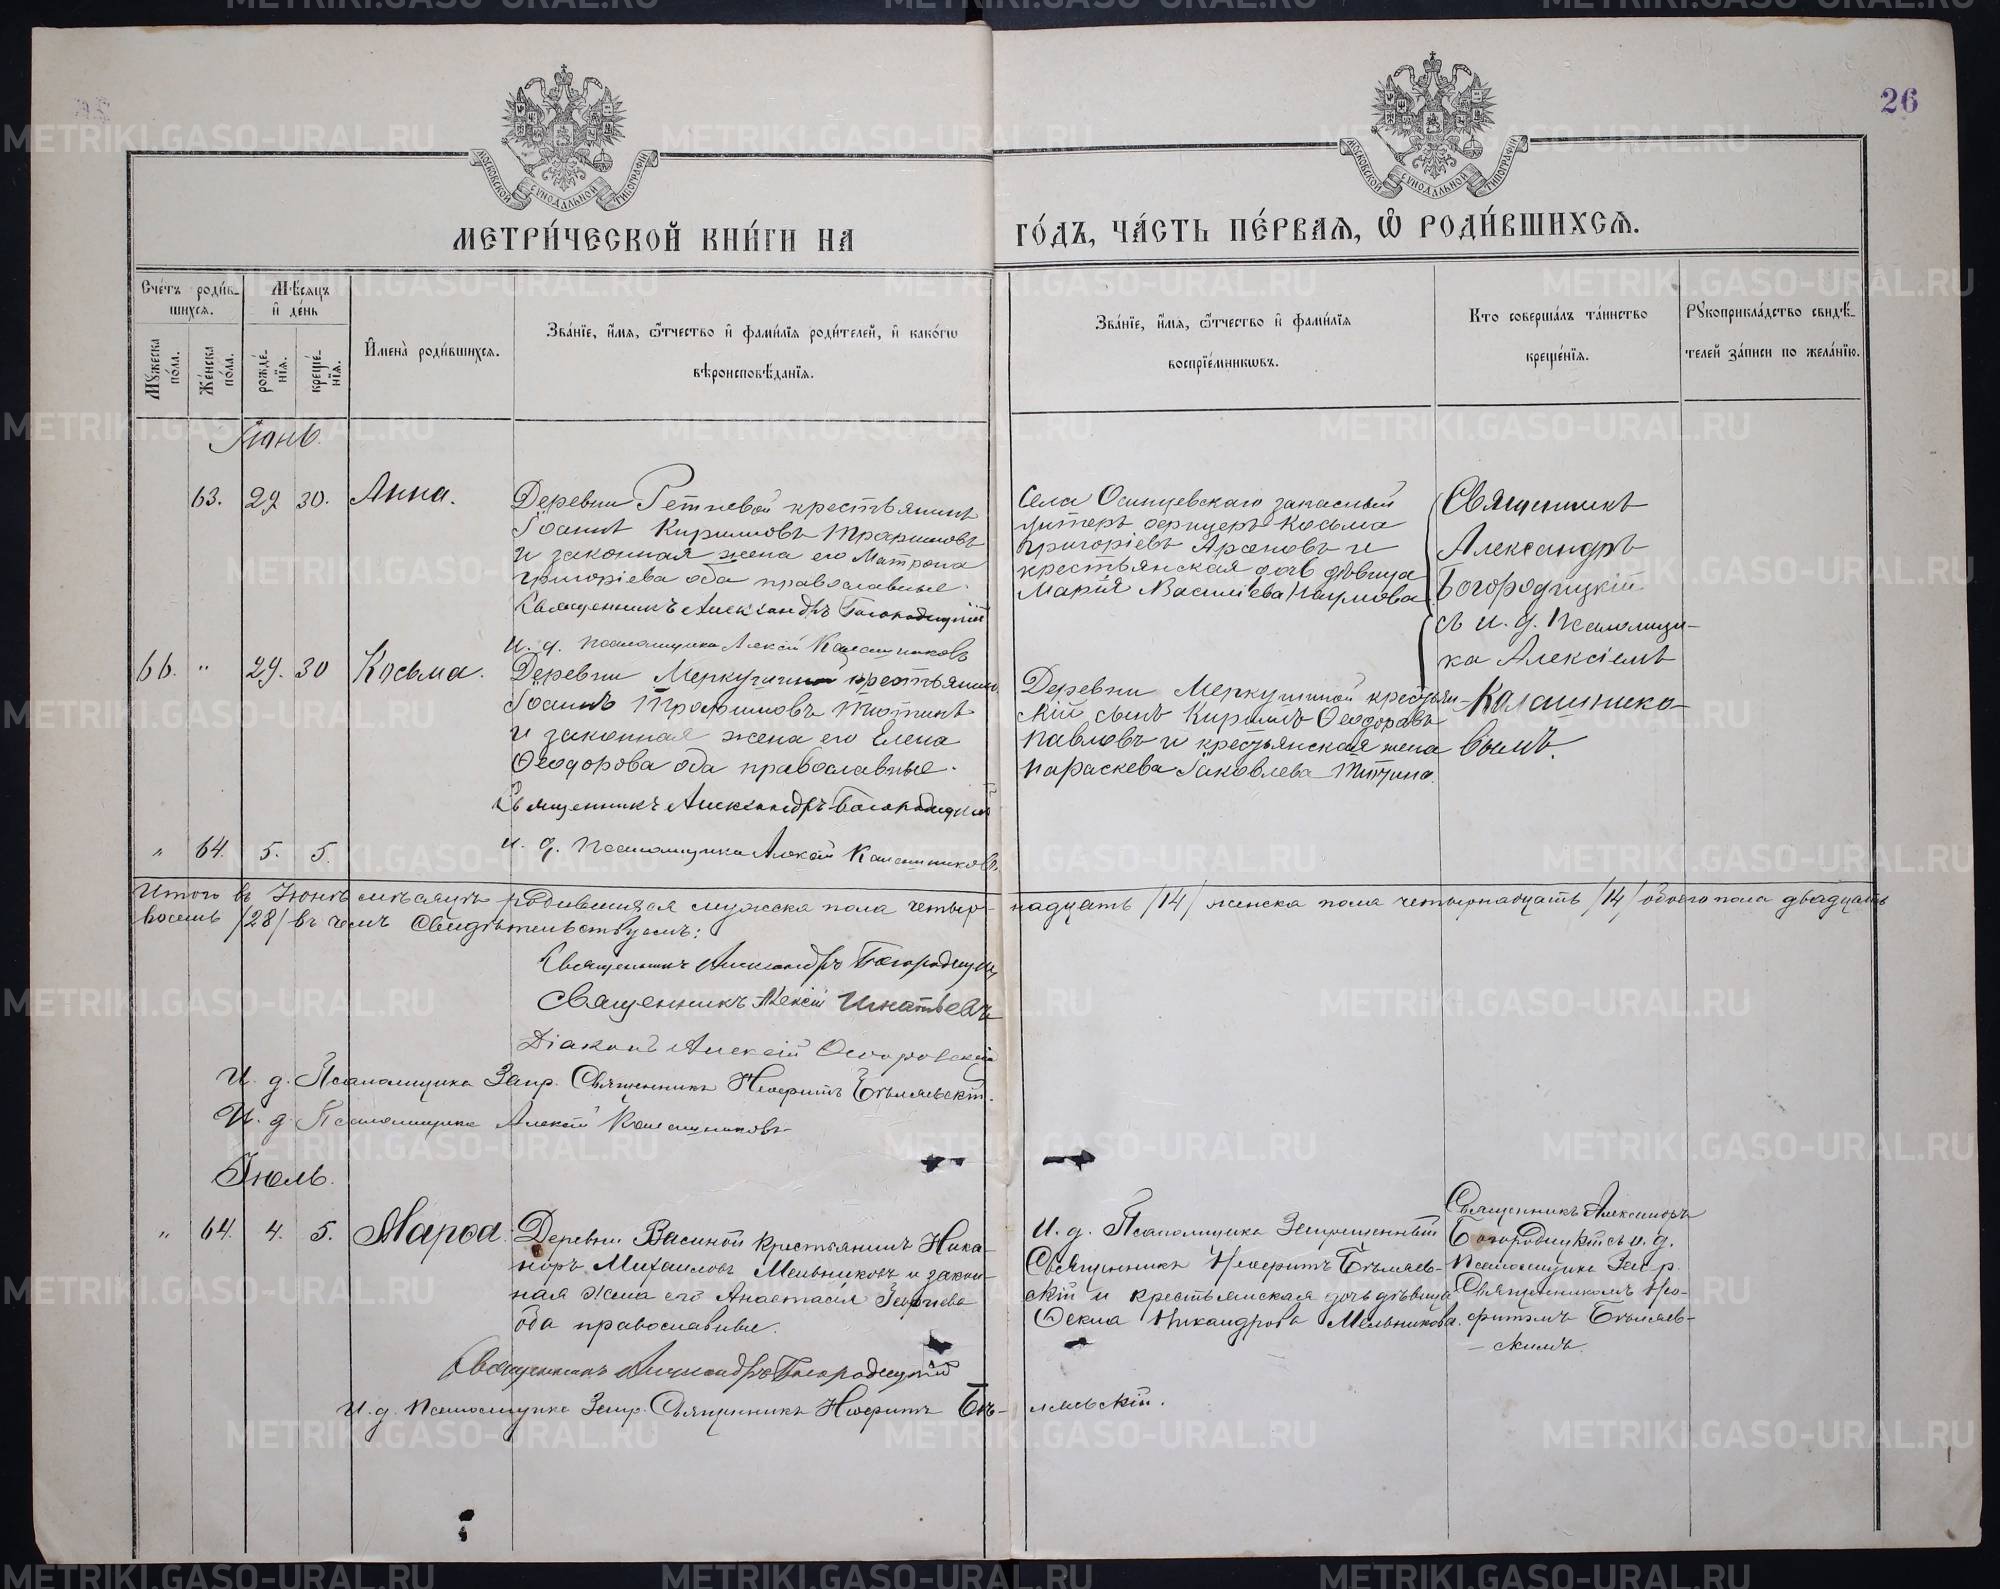 26
МОСКОВСКОЙ СѴНОДАЛЬНОЙ ТИПОГРАФІИ
МОСКОВСКОЙ СѴНОДАЛЬНОЙ ТИПОГРАФІИ
МЕТРИ́ЧЕСКОЙ КНИ́ГИ НА ГО́ДЪ, ЧА́СТЬ ПЕ́РВАЯ, Ѡ РОДИ́ВШИХСЯ.
Сче́тъ роди́в-
шихся.
Мѣсяцъ
и де́нь
Мꙋжеска по́ла.
Же́нска по́ла.
рожде́-
нїя.
креще́-
нїя.
Имена̀ роди́вшихся.
Зва́нїе, и́мя, ѻ҆́тчество и фами́лїя роди́телей, и како́гѡ
вѣроисповѣ́данїя.
Зва́нїе, и́мя, ѻ҆́тчество и фами́лїя
воспрїе́мникѡвъ.
Кто соверша́лъ та́инство
креще́нїя.
Рꙋкоприкла́дство свидѣ́-
телей за́писи по жела́нїю.
Іюнь.
63. 29 30. Анна.
Деревни Ретневой крестьянинъ
Іоаннъ Кирилловъ
и законная жена его Матрона
Григоріева оба православные.
Священникъ Александръ Богородицкій
И. д. псаломщика Алексій Калашниковъ
Села Осинцевскаго запасный
унтеръ офицеръ Косьма
Григоріевъ и
крестьянская дочь дѣвица
Марія Васильева
Священникъ
Александръ
Богородицкій
съ и. д. псаломщи-
ка Алексіемъ
Калашнико-
вымъ.
66. " 29. 30 Косьма.
Деревни крестьянинъ
Іоаннъ Трофимовъ
и законная жена его Елена
Ѳеодорова оба православные.
Священникъ Александръ Богородицкій
и. д. псаломщика Алексій Калашниковъ.
Деревни крестьян-
скій сынъ Кириллъ Ѳеодоровъ
Павловъ и крестьянская жена
Параскева Іаковлева
" 64. 5. 5.
Итого въ Іюнѣ мѣсяцѣ родившихся мужска пола четыр- надцать /14/ женска пола четырнадцать /14/ обоего пола двадцать
восемь /28/ въ чемъ свидѣтельствуемъ:
Священникъ Александръ Богородицкій
Священникъ Алексій Игнатьевъ
Діаконъ Алексій
И. д. Псаломщика Запр. Священникъ Неофитъ Бѣляевскій.
И. д. Псаломщика Алексій Калашниковъ
Іюль.
" 64. 4. 5. Марѳа.
Деревни Васиной крестьянинъ Ника-
норъ Михаиловъ Мельниковъ и закон-
ная жена его Анастасія Георгіева
оба православные.
Священникъ Александръ Богородицкій
И. д. псаломщика Запр. Священникъ Неофитъ Бѣ- ляевскій.
И. д. Псаломщика Запрещенный
Священникъ Неофитъ Бѣляев-
скій и крестьянская дочь дѣвица
Ѳекла Никандрова Мельникова.
Священникъ Александръ
Богородицкій съ и. д.
псаломщика Запр.
Священникомъ Нео-
фитомъ Бѣляев-
скимъ.